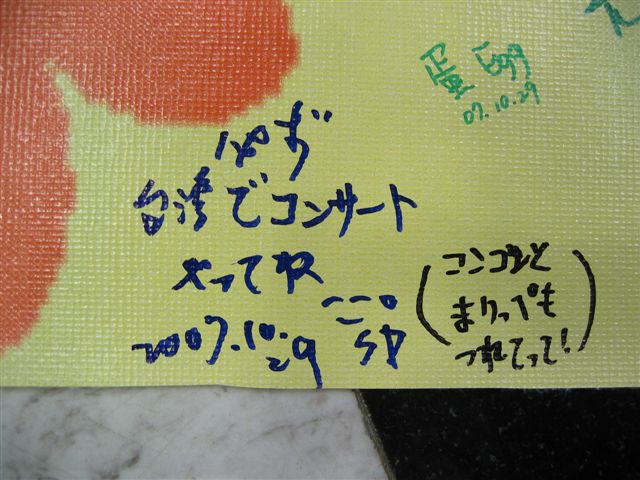 蛋 Egg
07.10.29
ゆず
台湾でコンサート
やってね
2007.10.29
(コンコンと
まりっぺも
つれてって!)